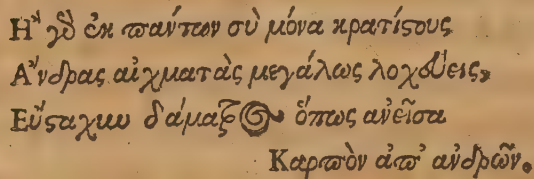 Ἦ γὰρ ἐκ πάντων σὺ μόνα κρατίϛους
Ἄνδρας αἰχματὰς μεγάλως λοχεύεις,
Εὔϛαχυν δάματρος ὅπως ἀνεῖσα
Καρπὸν ἀπ' ἀνδρῶν.